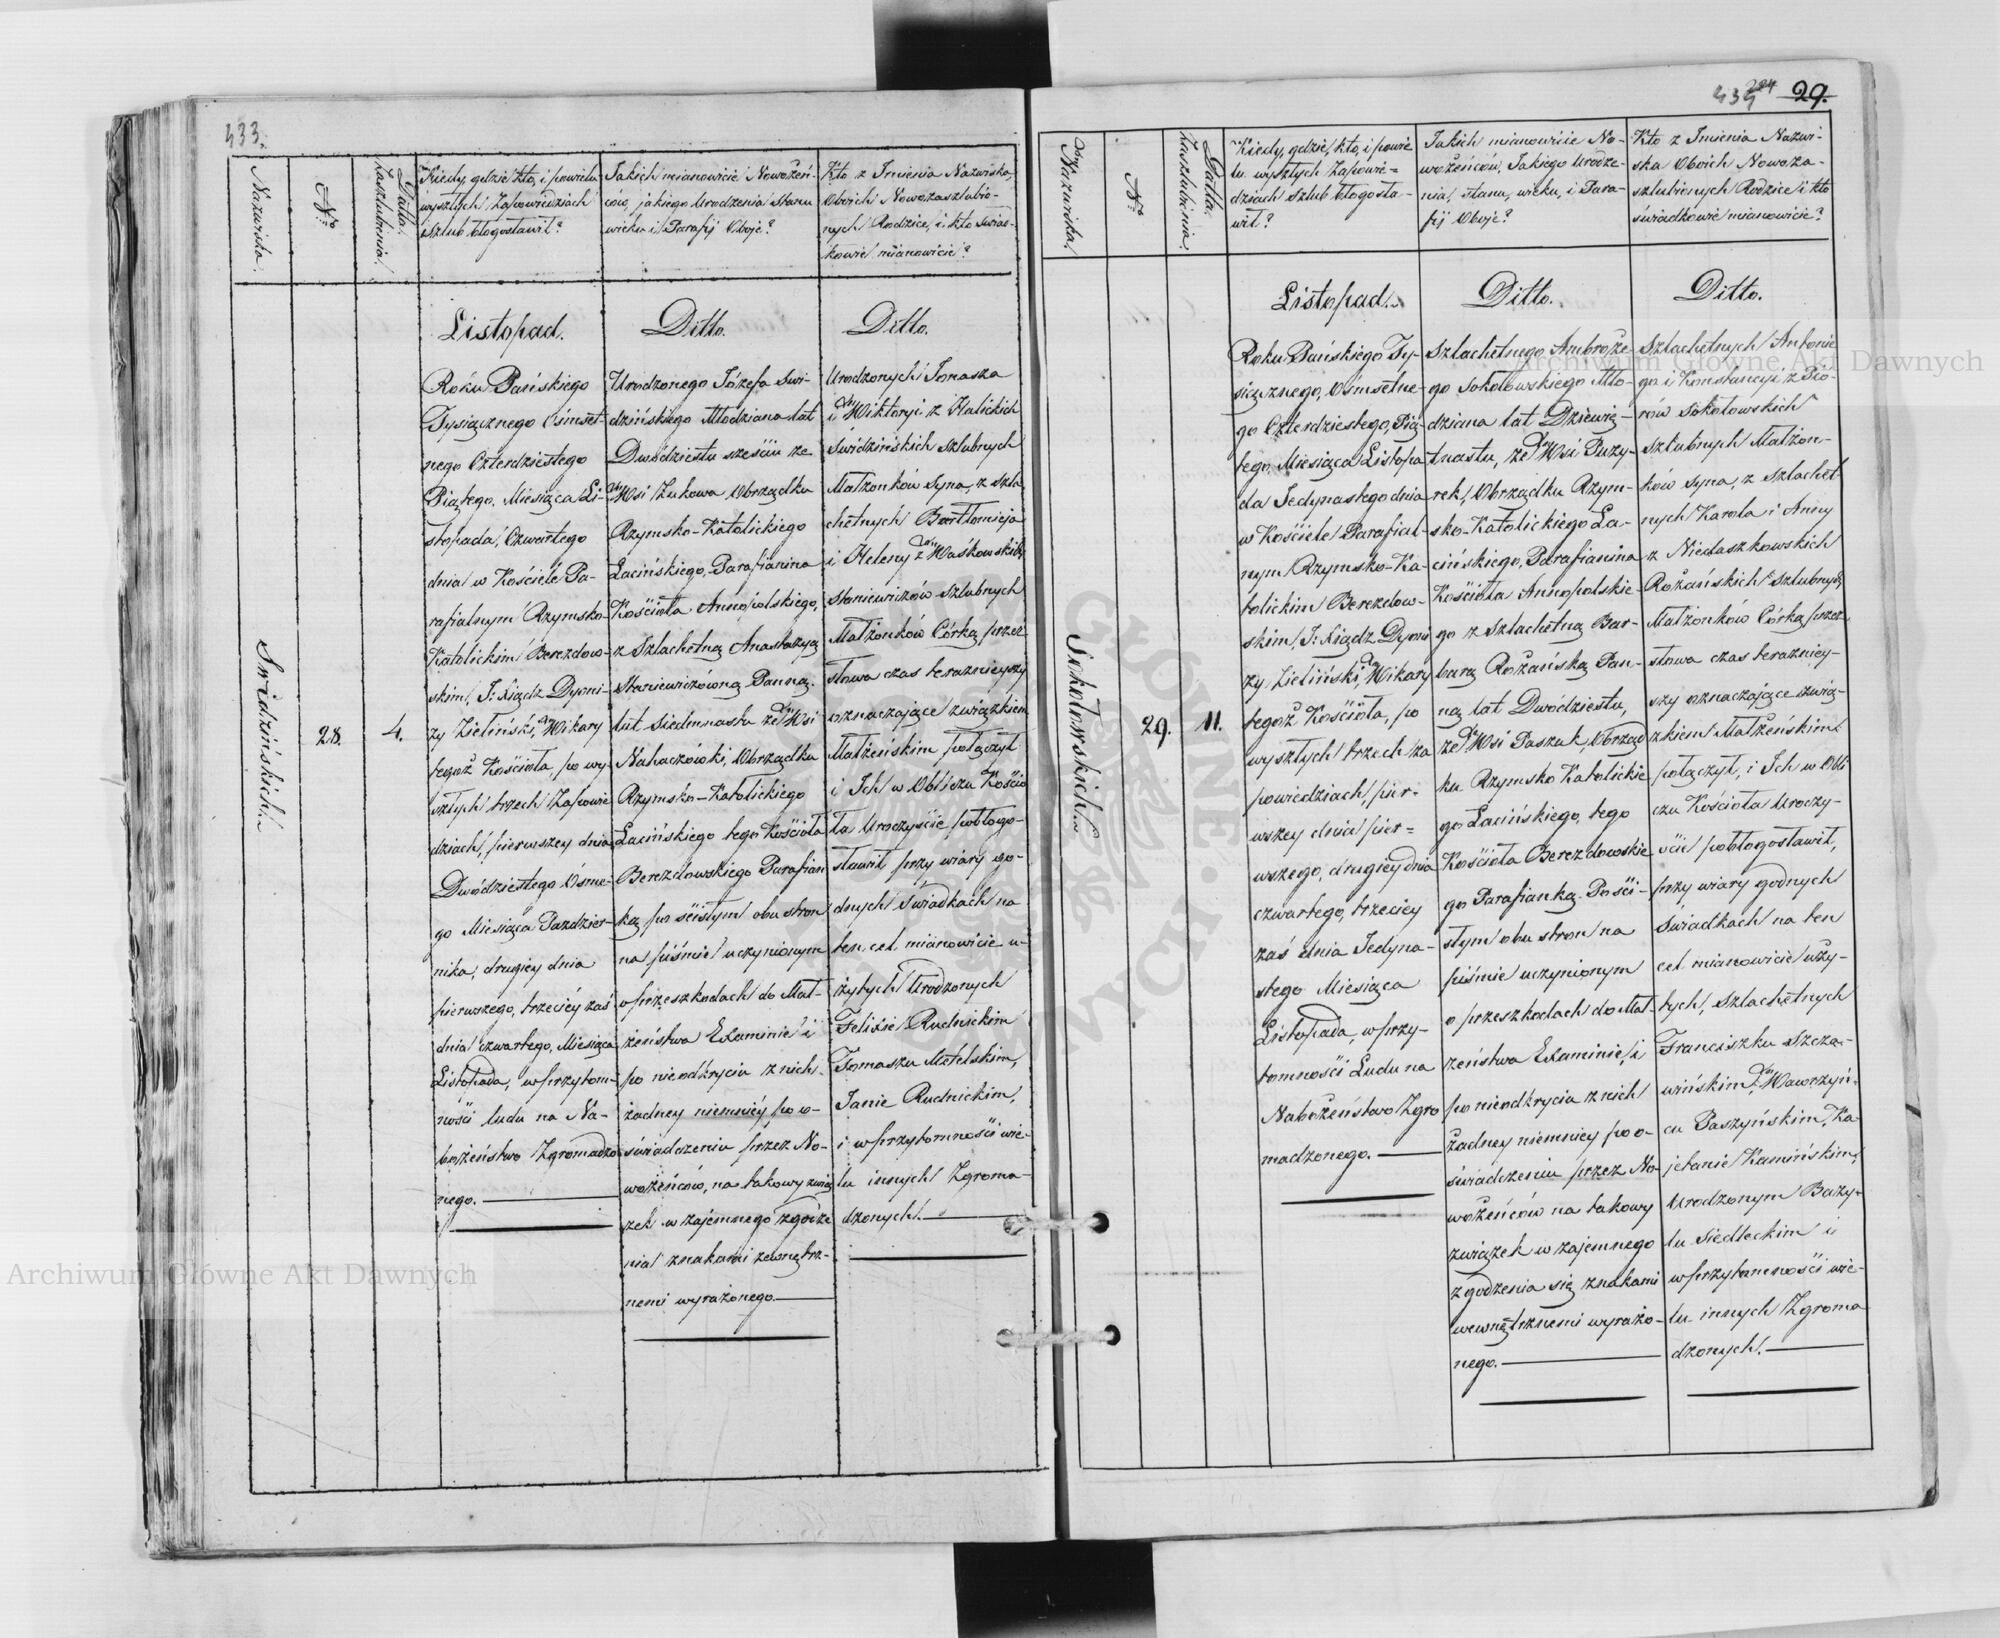 433.
Nazwiska.
Nro
Datta Zaszlubienia.
Kiedy, gdzie kto, i powielu
wyszłych Zapowiedziach
Szlub błogosławił?
Jakich mianowicie Nowożeń-
ców, jakiego Urodzenia, Stanu
wieku i Parafij Oboje?
Kto z Imienia Nazwiska,
Oboich Nowozaszlubio-
nych Rodzice, i kto świad-
kowie mianowicie?
Swidzińskich.
28.
4.
Listopad.
Roku Pańskiego
Tysiącznego Osimset-
nego Czterdziestego
Piątego, Miesiąca Li-
stopada, Czwartego
dnia w Kościele Pa-
rafialnym Rzymsko-
Katolickim Berezdow-
skim, J: Xiądz Dyoni-
zy Zieliński, Wikary
tegoż Kościoła, po wy-
szłych trzech Zapowie
dziach, pierwszey dnia
Dwódziestego Osme-
go Miesiąca Pazdzier-
nika, drugiey dnia
pierwszego, trzeciey zaś
dnia czwartego, Miesiąca
Listopada, w przytom-
ności ludu na Na-
bożeństwo Zgromadzo
nego.
Ditto.
Urodzonego Józefa Swi-
dzińskiego Młodziana lat
Dwódziestu sześciu ze
Wsi Żukowa Obrządku
Rzymsko-Katolickiego
Łacińskiego, Parafianina
Kościoła Annopolskiego,
z Szlachetną Anastazyą
Staniewiczówną Panną.
lat Siedmnastu ze Wsi
Nahaczówki, Obrządku
Rzymsko-Katolickiego
Łacińskiego tego Kościoła
Berezdowskiego Parafian
ką, po ścisłym obu stron
na piśmie uczynionym
o przeszkodach do Mał-
żeństwa Examinie i
po nieodkryciu z nich
żadney niemniey po o-
świadczeniu przez No-
wożeńców, na takowy zwią
zek w zajemnego zgodze
nia znakami zewnętrz-
nemi wyrażonego.
Ditto.
Urodzonych Tomasza
i Wiktoryi z Halickich
Swidzińskich szlubnych
Małżonków Syna, z szla
chetnych Bartłomieja
i Heleny z Waśkowskich
Staniewiczów szlubnych
Małżonków Córką, przez
słowa czas teraznieyszy
oznaczające związkiem
Małżeńskim połączył
i Ich w Obliczu Kościo
ła Uroczyście pobłogo-
sławił przy wiary go-
dnych Swiadkach na
ten cel mianowicie u-
żytych Urodzonych
Felixie Rudnickim
Tomaszu Motelskim,
Janie Rudnickim,
i w przytomności wie-
lu innych Zgroma-
dzonych.
434 224 29.
Nazwiska.
Nro
Datta Zaszlubienia.
Kiedy, gdzie, kto, i powie
lu wyszłych Zapowie=
dziach szlub błogosła-
wił?
Jakich mianowicie No-
wożeńców, Jakiego Urodze-
nia, stanu, wieku, i Para-
fij Oboje?
Kto z Imienia Nazwi-
ska Oboich Nowoza-
szlubionych Rodzice i kto
świadkowie mianowicie?
Sokołowskich.
29.
11.
Listopad.
Roku Pańskiego Ty-
siącznego, Osmsetne-
go Czterdziestego, Pią-
tego, Miesiąca Listopa
da Jedynastego dnia
w Kościele Parafial-
nym Rzymsko-Ka-
tolickim Berezdow-
skim, J: Xiądz Dyoni
zy Zieliński, Wikary
tegoż Kościoła, po
wyszłych trzech Za
powiedziach, pier-
wszey dnia pier=
wszego, drugiey dnia
czwartego, trzeciey
zaś dnia Jedyna-
stego Miesiąca
Listopada, w przy-
tomności Ludu na
Nabożeństwo Zgro
madzonego.
Ditto.
Szlachetnego Ambroże
go Sokołowskiego Mło-
dziana lat Dziewię-
tnastu, ze Wsi Puzy-
rek, Obrządku Rzym-
sko-Katolickiego Ła-
cińskiego, Parafianina
Kościoła Annopolskie-
go z Szlachetną Bar-
barą Rożańską Pan-
ną lat Dwódziestu,
ze Wsi Paszuk, Obrząd
ku Rzymsko Katolickie
go Łacińskiego, tego
Kościoła Berezdowskie
go Parafianką. Po ści-
słym obu stron na
piśmie uczynionym
o przeszkodach do Mał-
żeństwa Examinie, i
po nieodkrycia z nich
żadney niemniey po o-
świadczeniu przez No-
wożeńców na takowy
związek w zajemnego
zgodzenia się znakami
wewnętrznemi wyrażo-
nego.
Ditto.
Szlachetnych Antonie
go i Konstancyi z Pió-
rów Sokołowskich
szlubnych Małżon-
ków Syna, z Szlachet
nych Karola i Anny
z Niedaszkowskich
Rożańskich Szlubnych
Małżonków Córką, przez
słowa czas terazniey-
szy oznaczające zwią-
zkiem Małżeńskim
połączył, i Ich w Obli
czu Kościoła Uroczy-
ście pobłogosławił,
przy wiary godnych
Swiadkach na ten
cel mianowicie uży-
tych, Szlachetnych
Franciszku Szcza-
wińskim, Wawrzyń-
cu Paszyńskim, Ka-
jetanie Kamińskim,
Urodzonym Bazy-
lu Siedleckim i
w przytomności wie-
lu innych Zgroma
dzonych.
Archiwum Główne Akt Dawnych
Archiwum Główne Akt Dawnych